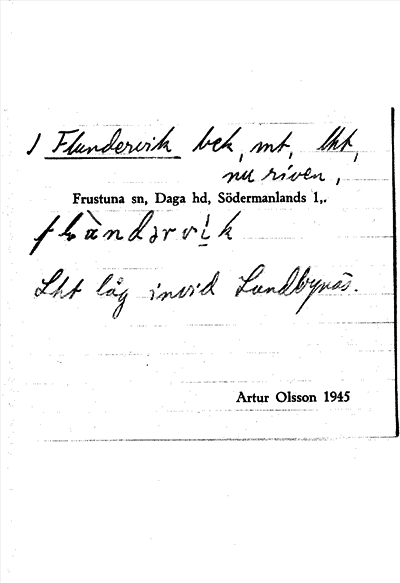 1 Flundervik bek, mt, lht,
nu riven,
Frustuna sn, Daga hd, Södermanlands l,.
Lht låg invid Lundbynäs.
Artur Olsson 1945